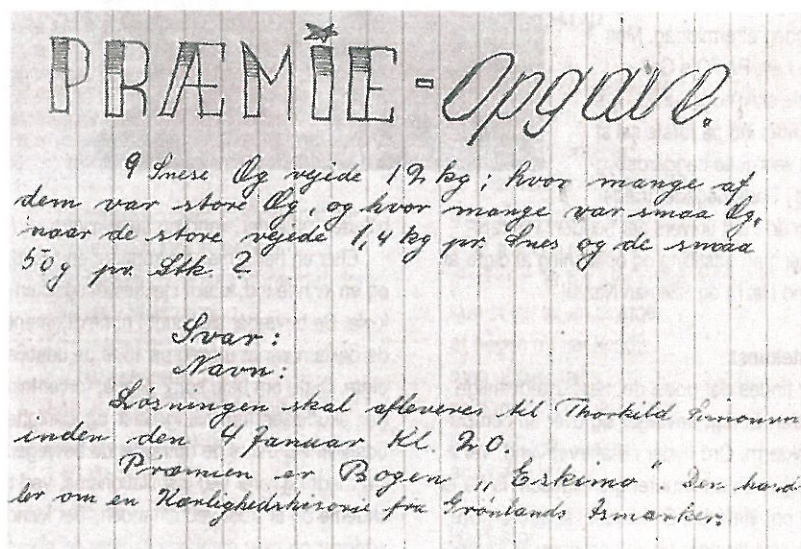 PRÆMIE - Opgave.
9 Snese Æg vejede 12 kg; hvor mange af
dem var store Æg, og hvor mange var smaa Æg,
naar de store vejede 1,4 kg pr. Snes og de smaa
50 g pr. Stk. ?
Svar:
Navn:
Løsningen skal afleveres til Thorkild Simonsen
inden den 4 Januar Kl. 20.
Præmien er Bogen „Eskimo" Den hand
ler om en Kærlighedshisorie fra Grønlands Ismarker.